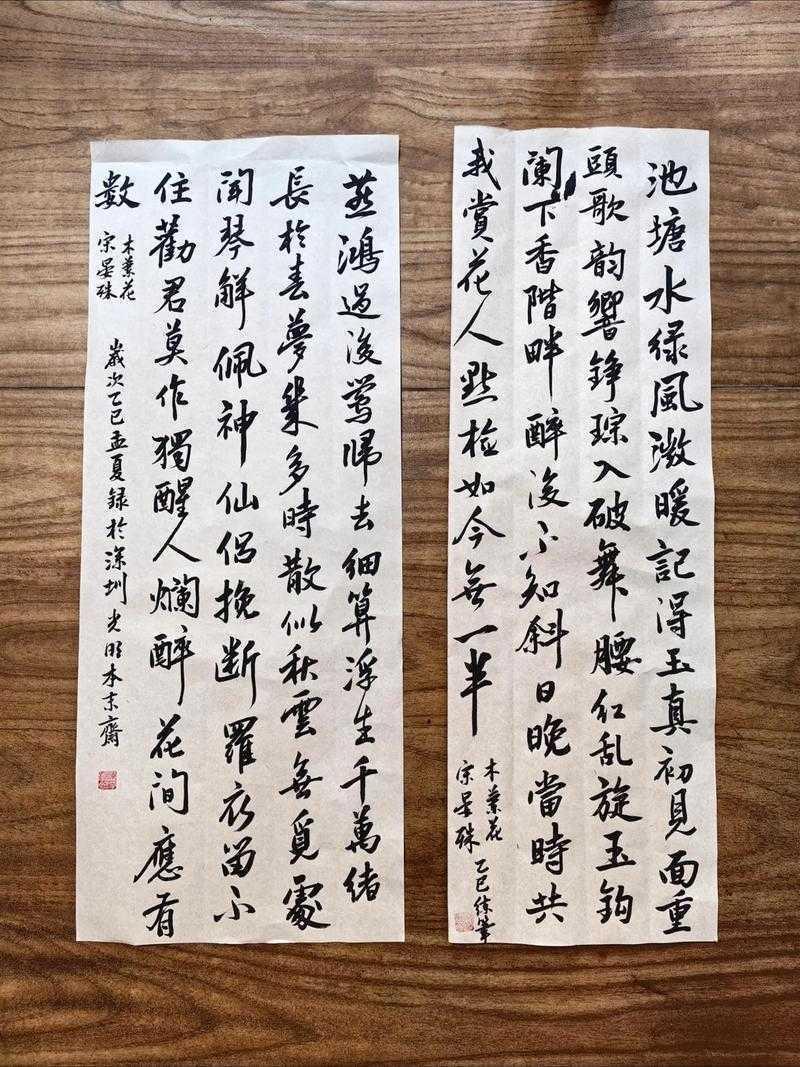 池塘水绿風微暖記得玉真初見面重
頭歌韵響錚琮入破舞腰红乱旋玉鈎
阑下香階畔醉後不知斜日晚當時共
我賞花人點检如今無一半
木蘭花
宋晏殊
乙巳练筆
燕鴻過後鶯歸去細算浮生千萬緒
長於春夢幾多時散似秋雲無覓處
聞琴解佩神仙侣挽断羅衣留不
住勸君莫作獨醒人爛醉花间應有
數
木蘭花
宋晏殊
歲次乙巳孟夏録於深圳光明本末齋